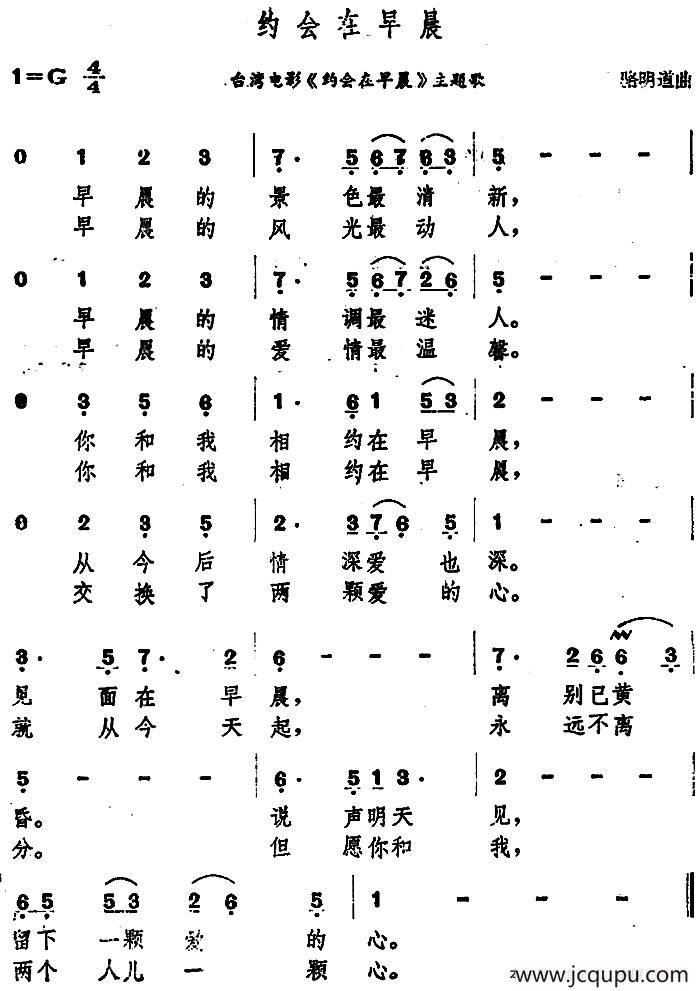 约会在早晨
1=G 4/4 台湾电影《约会在早晨》主题歌 骆明道曲
0 1 2 3 | 7· 5 6 7 6 3 | 5 - - - |
早晨的景色最清新，
早晨的风光最动人，
0 1 2 3 | 7· 5 6 7 2 6 | 5 - - - |
早晨的情调最迷人。
早晨的爱情最温馨。
0 3 5 6 | 1· 6 1 5 3 | 2 - - - |
你和我相约在早晨，
你和我相约在早晨，
0 2 3 5 | 2· 3 7 6 5 | 1 - - - |
从今后情深爱也深。
交换了两颗爱的心。
3· 5 7· 2 | 6 - - - | 7· 2 6 6 3 |
见面在早晨，离别已黄
就从今天起，永远不离
5 - - - | 6· 5 1 3· | 2 - - - |
昏。说声明天见，
分。但愿你和我，
6 5 5 3 2 6 5 | 1 - - - ‖
留下一颗爱的心。
两个人儿一颗心。
www.jcqupu.com